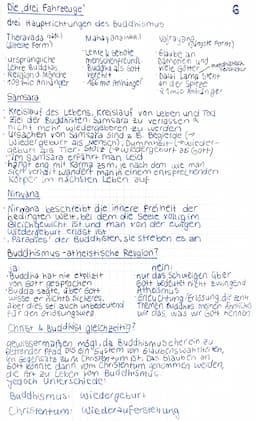 Die „drei Fahrzeuge"
6
drei Hauptrichtungen des Buddhismus
Theravada
Mahayana
Vajrayana
(älteste Form)
(jüngste Form)
ursprüngliche
Lehre Buddhas
Religion d. Mönche
Lehre & Gebote
menschenfreundl.
Buddha als Gott
verehrt
Glaube an
Dämonen und
viele Götter
Dalai Lama steht
an der Spitze
Samsara
· Kreislauf des Lebens, Kreislauf von Leben und Tod
· Ziel der Buddhisten: Samsara zu verlassen &
nicht mehr wiedergeboren zu werden
· Ursachen von Samsara sind z.B. Begierde (→
Wiedergeburt als Mensch), Dummheit (→ Wieder-
geburt als Tier), Stolz (→ Wiedergeburt als Gott)
· Im Samsara erfährt man Leid
· hängt eng mit Karma zsm, je nach dem wie man
sich verhält wandert man in einem entsprechenden
Körper im nächsten Leben auf
Nirvana
· Nirvana beschreibt die innere Freiheit der
bedingten Welt, bei dem die Seele völlig im
Gleichgewicht ist und man von der ewigen
Wiedergeburt erlöst ist
· „Paradies" der Buddhisten, sie streben es an
Buddhismus - atheistische Religion?
ja:
nein:
· Buddha hat nie explizit
von Gott gesprochen
· Budda sagte, über Gott
wisse er nichts Sicheres,
aber dies sei auch unbedeutend
für den Erlösungsweg
· nur das Schweigen über
Gott bedeutet nicht zwingend
Atheismus
· Erleuchtung/Erlösung, die ein
Buddhisten meinen ähnlich
wie das, was wir Gott nennen
Christ & Buddhist gleichzeitig?
gewissermaßen mögl., da Buddhismus eher ein zu
Pfad als ein System von Glaubenswahrheiten,
im Gegensatz zum Christentum ist. Das Glauben an
Gott könnte dann vom Christentum genommen werden,
die Art zu Leben vom Buddhismus.
Jedoch Unterschiede:
Buddhismus: Wiedergeburt
Christentum: Wiederauferstehung